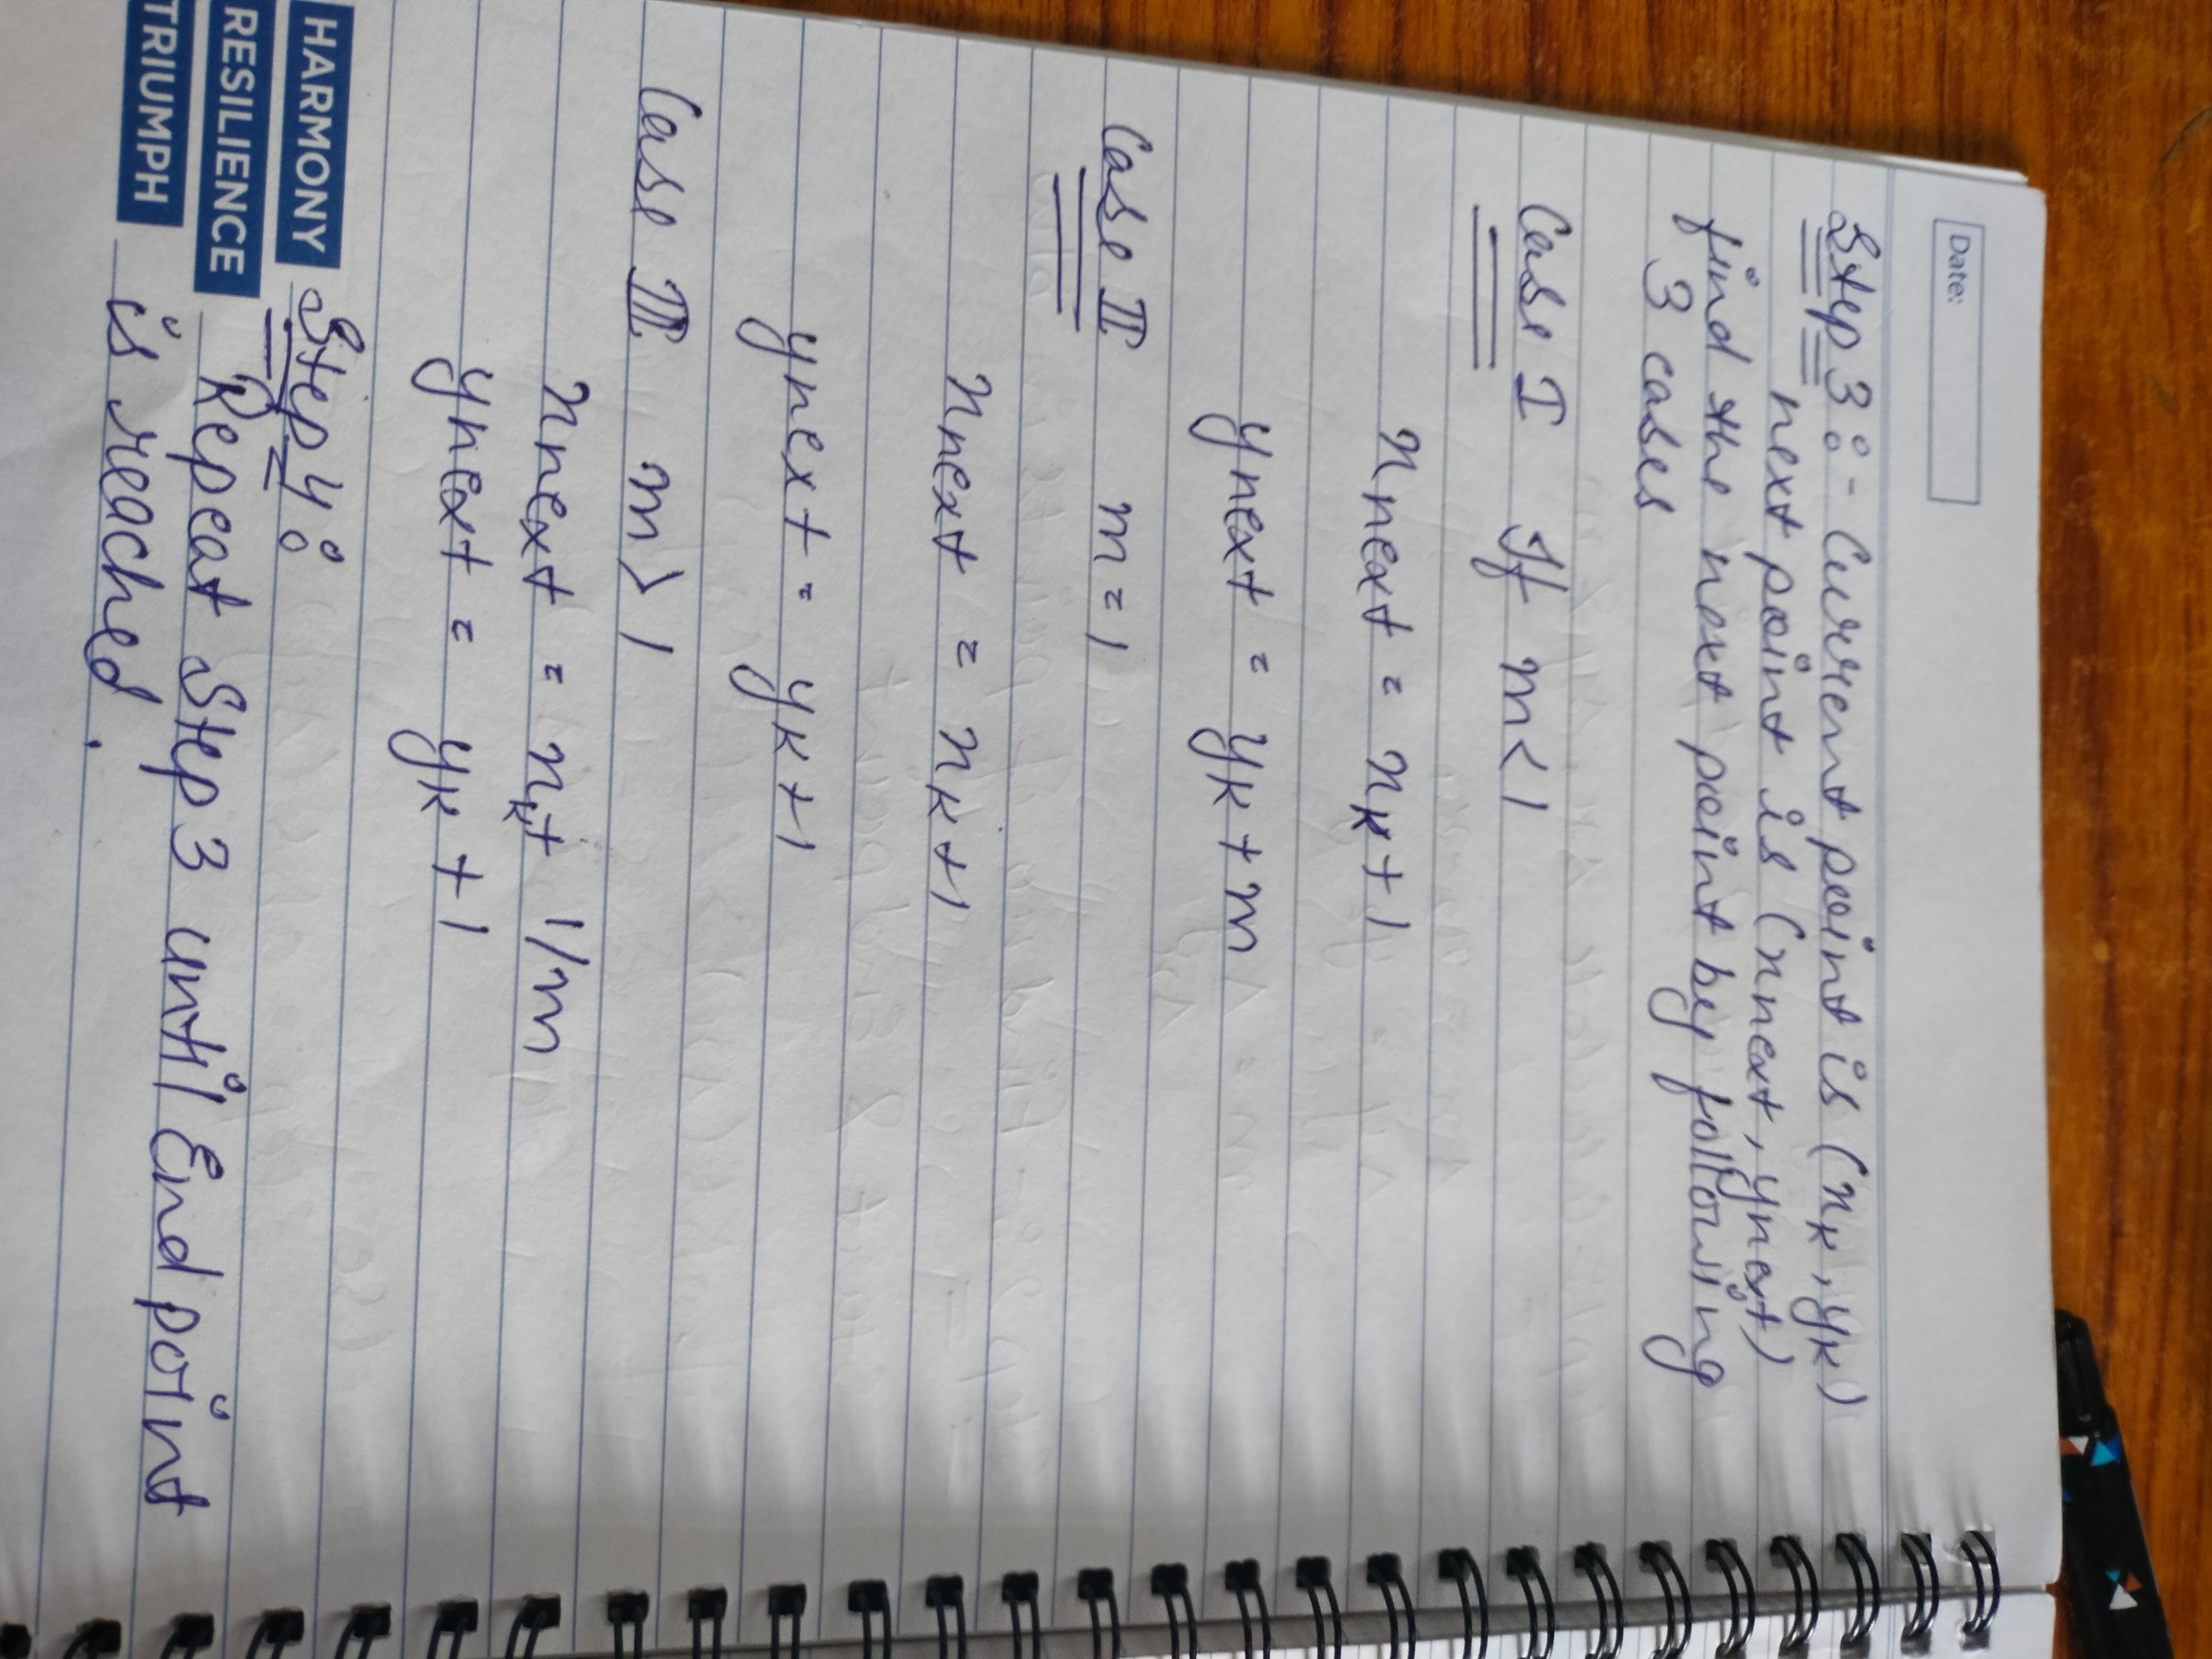 Date:
Step 3 :- Current point is (xk, yk)
next point is (xnext, ynext)
find the next point by following
3 cases
Case I If m < 1
xnext = xk + 1
ynext = yk + m
Case II m = 1
xnext = xk + 1
ynext = yk + 1
Case III m > 1
xnext = xk + 1/m
ynext = yk + 1
Step 4 :
Repeat Step 3 until End point
is reached.
HARMONY
RESILIENCE
TRIUMPH